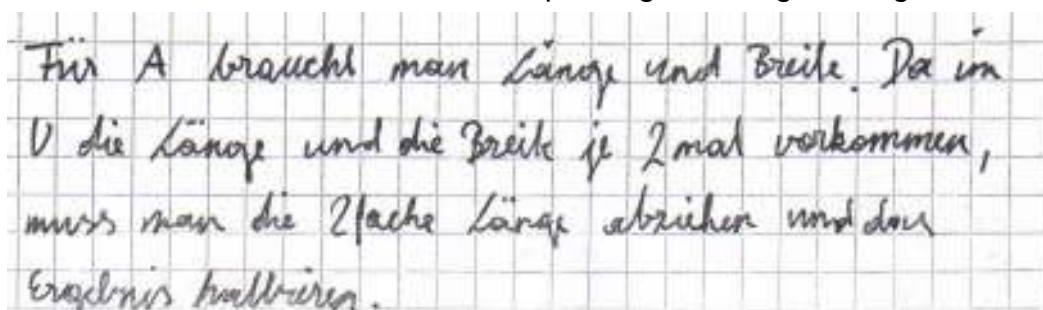 Für A braucht man Länge und Breite. Da im
U die Länge und die Breite je 2 mal vorkommen,
muss man die 2fache Länge abziehen und das
Ergebnis halbieren.